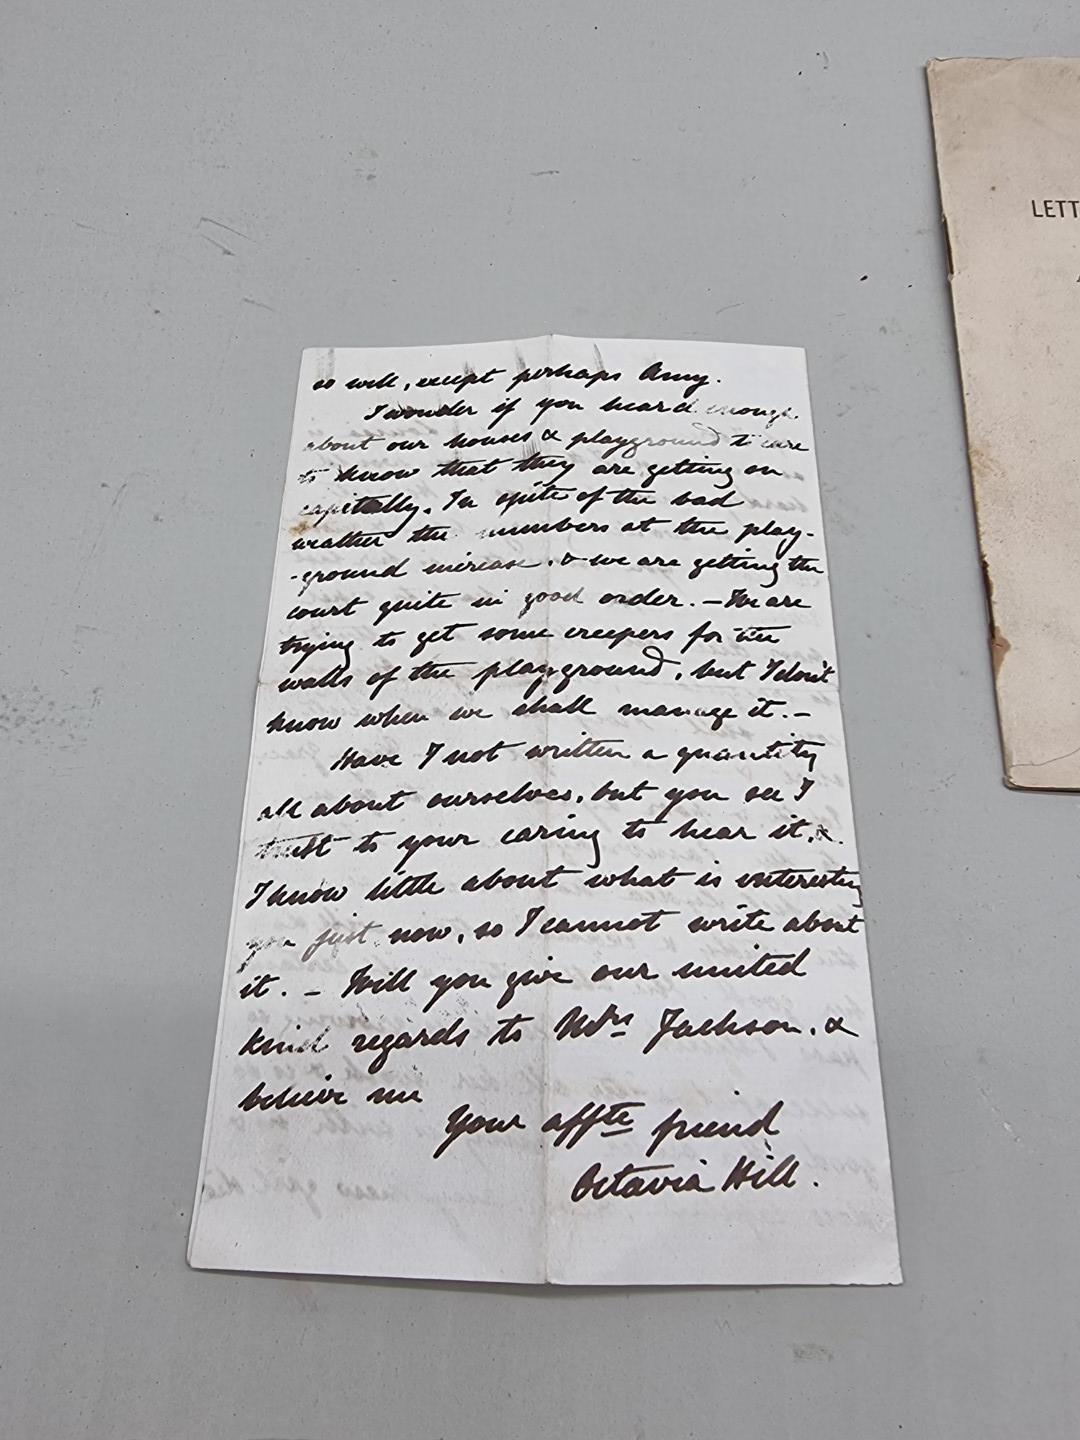 so well, except perhaps Amy.
I wonder if you heard enough
about our houses & playground to care
to know that they are getting on
capitally. In spite of the bad
weather the numbers at the play-
-ground increase. & we are getting the
court quite in good order. - We are
trying to get some creepers for the
walls of the playground, but I don't
know when we shall manage it. -
Have I not written a quantity
all about ourselves, but you see I
trust to your caring to hear it, &
I know little about what is interesting
you just now, so I cannot write about
it. - Will you give our united
kind regards to Mrs Jackson. &
believe me
Your affte friend
Octavia Hill.
LETT